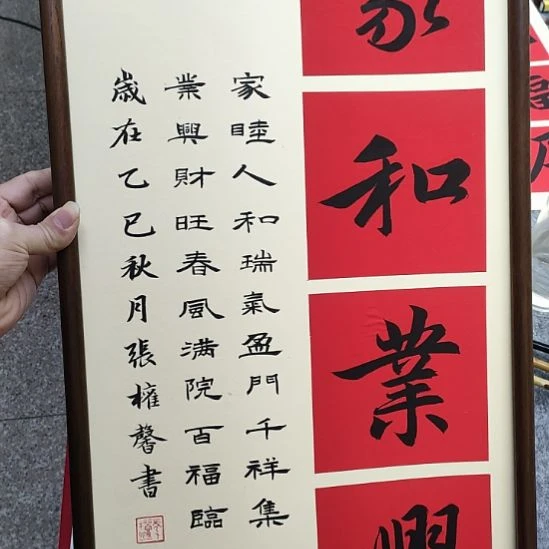 家和業興
家睦人和瑞氣盈門千祥集
業興財旺春風满院百福臨
歲在乙巳秋月張權馨書